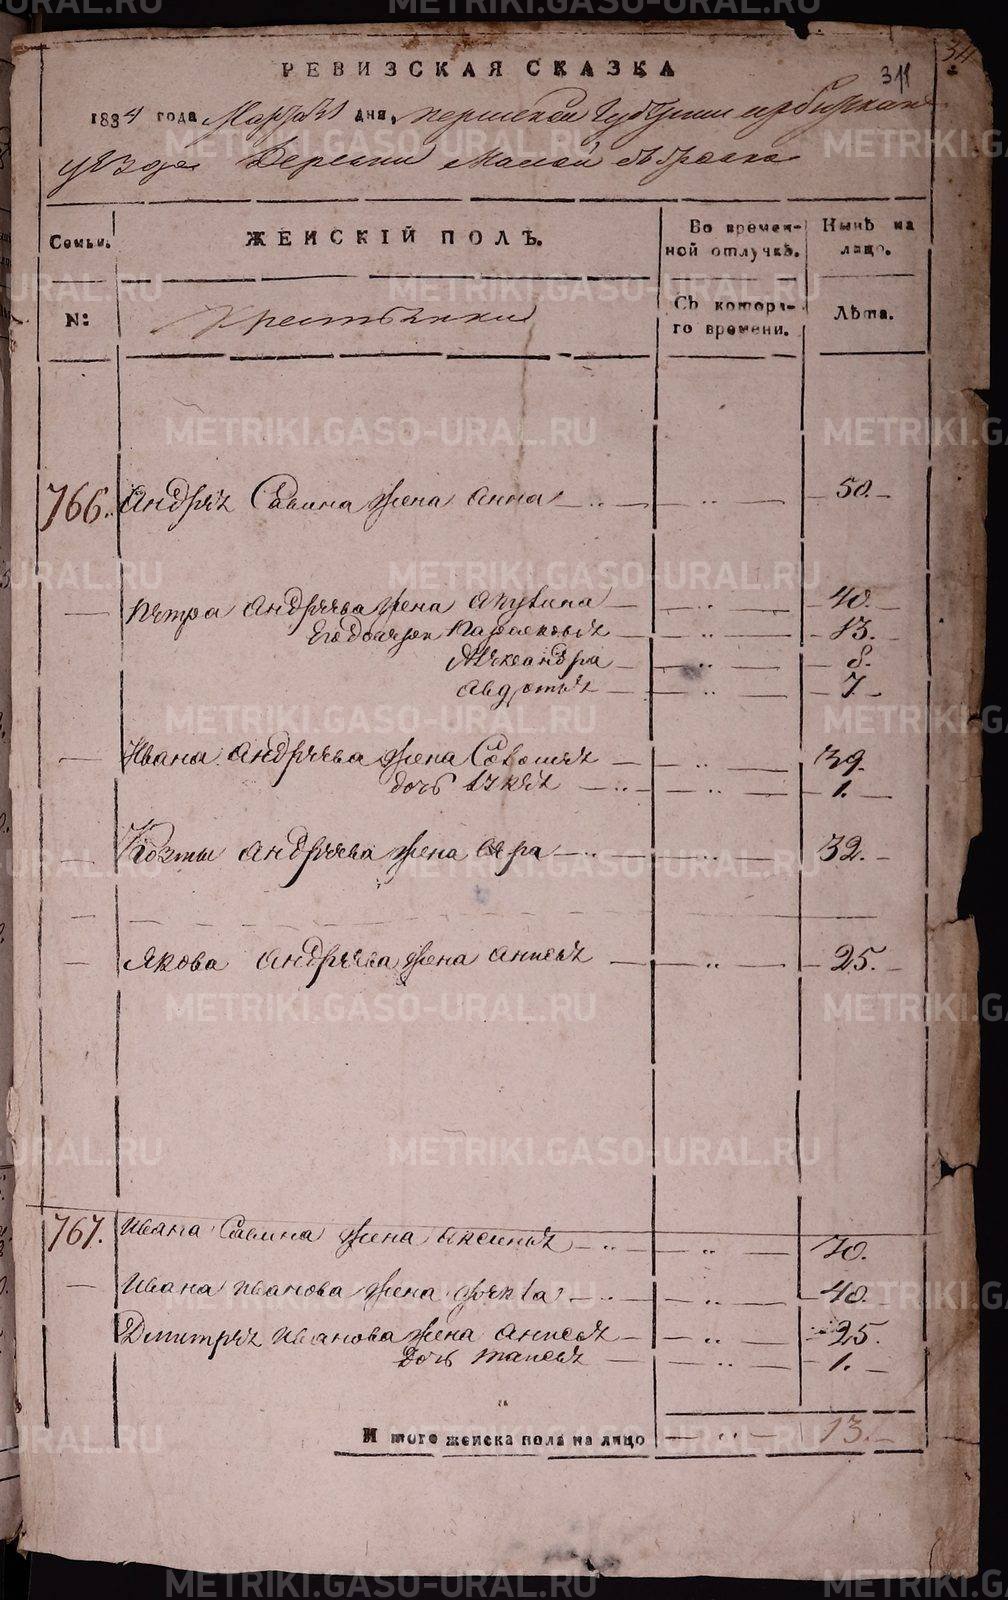 34
311
РЕВИЗСКАЯ СКАЗКА
1834 года Марта 1 дня, Пермской Губернии Ирбитскаго
уезда Деревни Малой
Семьи. ЖЕНСКІЙ ПОЛЪ. Во времен-ной отлучкѣ. Нынѣ на лицо.
№: Крестьянки Съ котора-го времени. Лѣта.
766. Андрея Савина жена Анна — 50.
Петра Андреева жена Акулина — 40.
Его дочери Парасковья — 13.
Александра — 8.
Авдотья — 7.
Ивана Андреева жена Соломея — 39.
дочь — 1.
Козмы Андреева жена — 32.
Якова Андреева жена Анисья — 25.
767. Ивана Савина жена Аксинья — 70.
Ивана Иванова жена Фекла — 40.
Дмитрея Иванова жена Анисья — 25.
дочь Таисья — 1.
Итого женска пола на лицо — 13.
METRIKI.GASO-URAL.RU